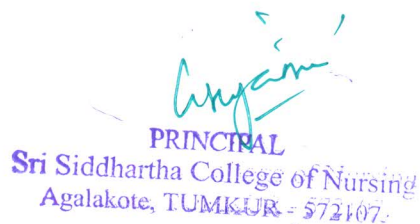 PRINCIPAL
Sri Siddhartha College of Nursing
Agalakote, TUMKUR - 572107.